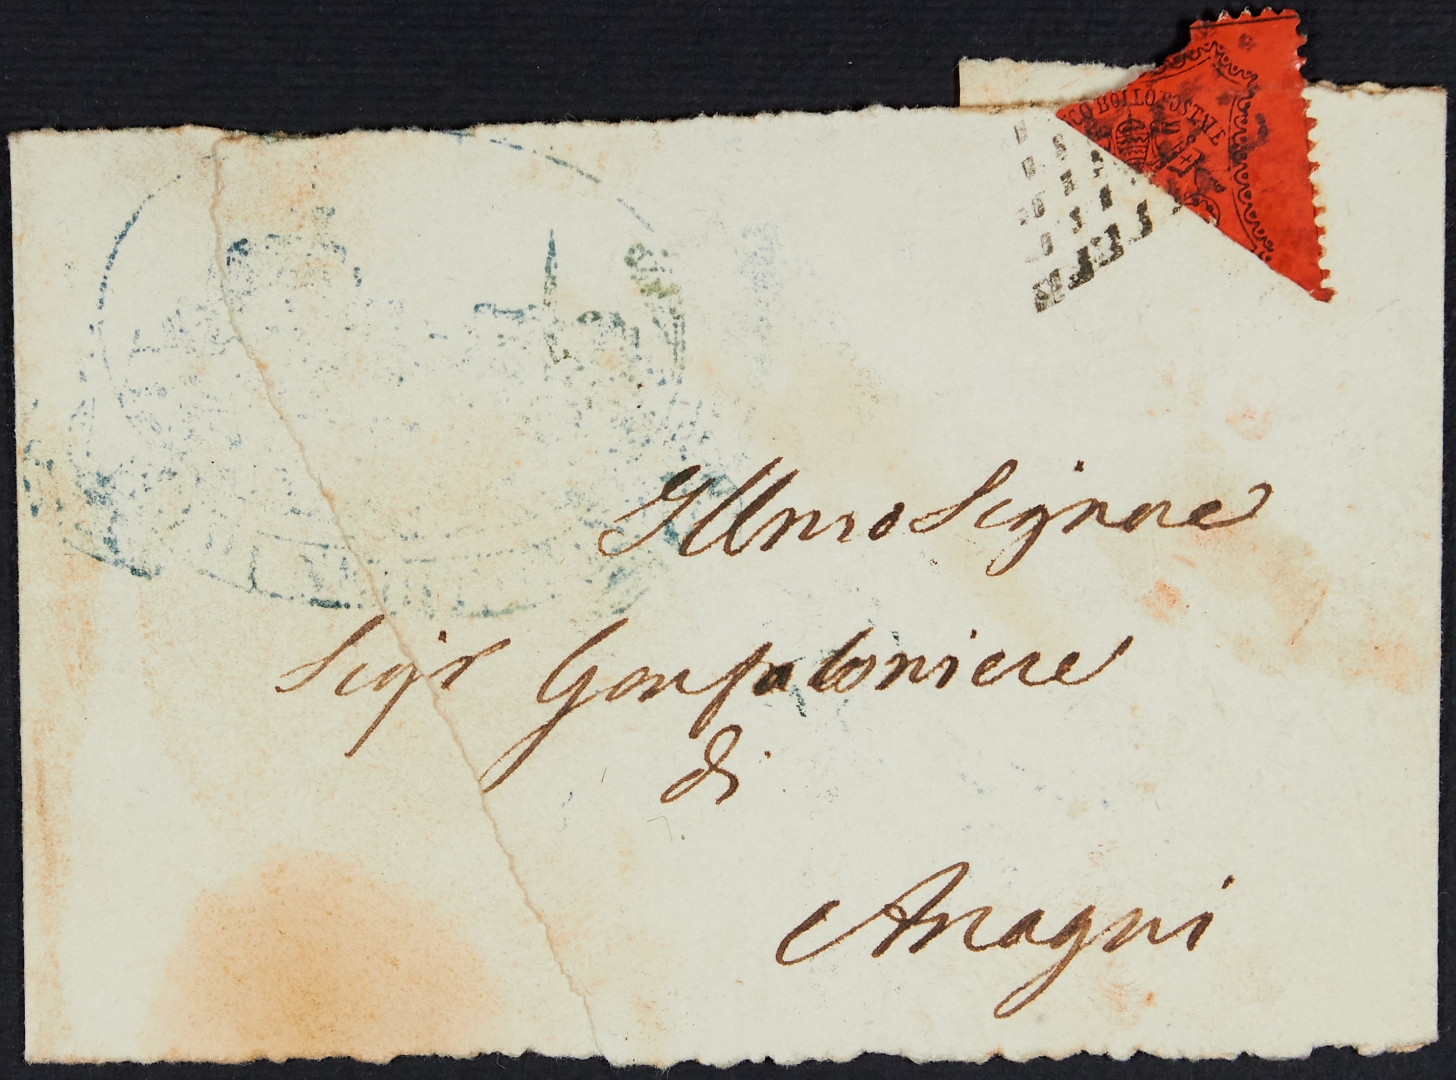 BOLLO POSTALE
Illmo Signore
Sigr Gonfaloniere
di
Anagni